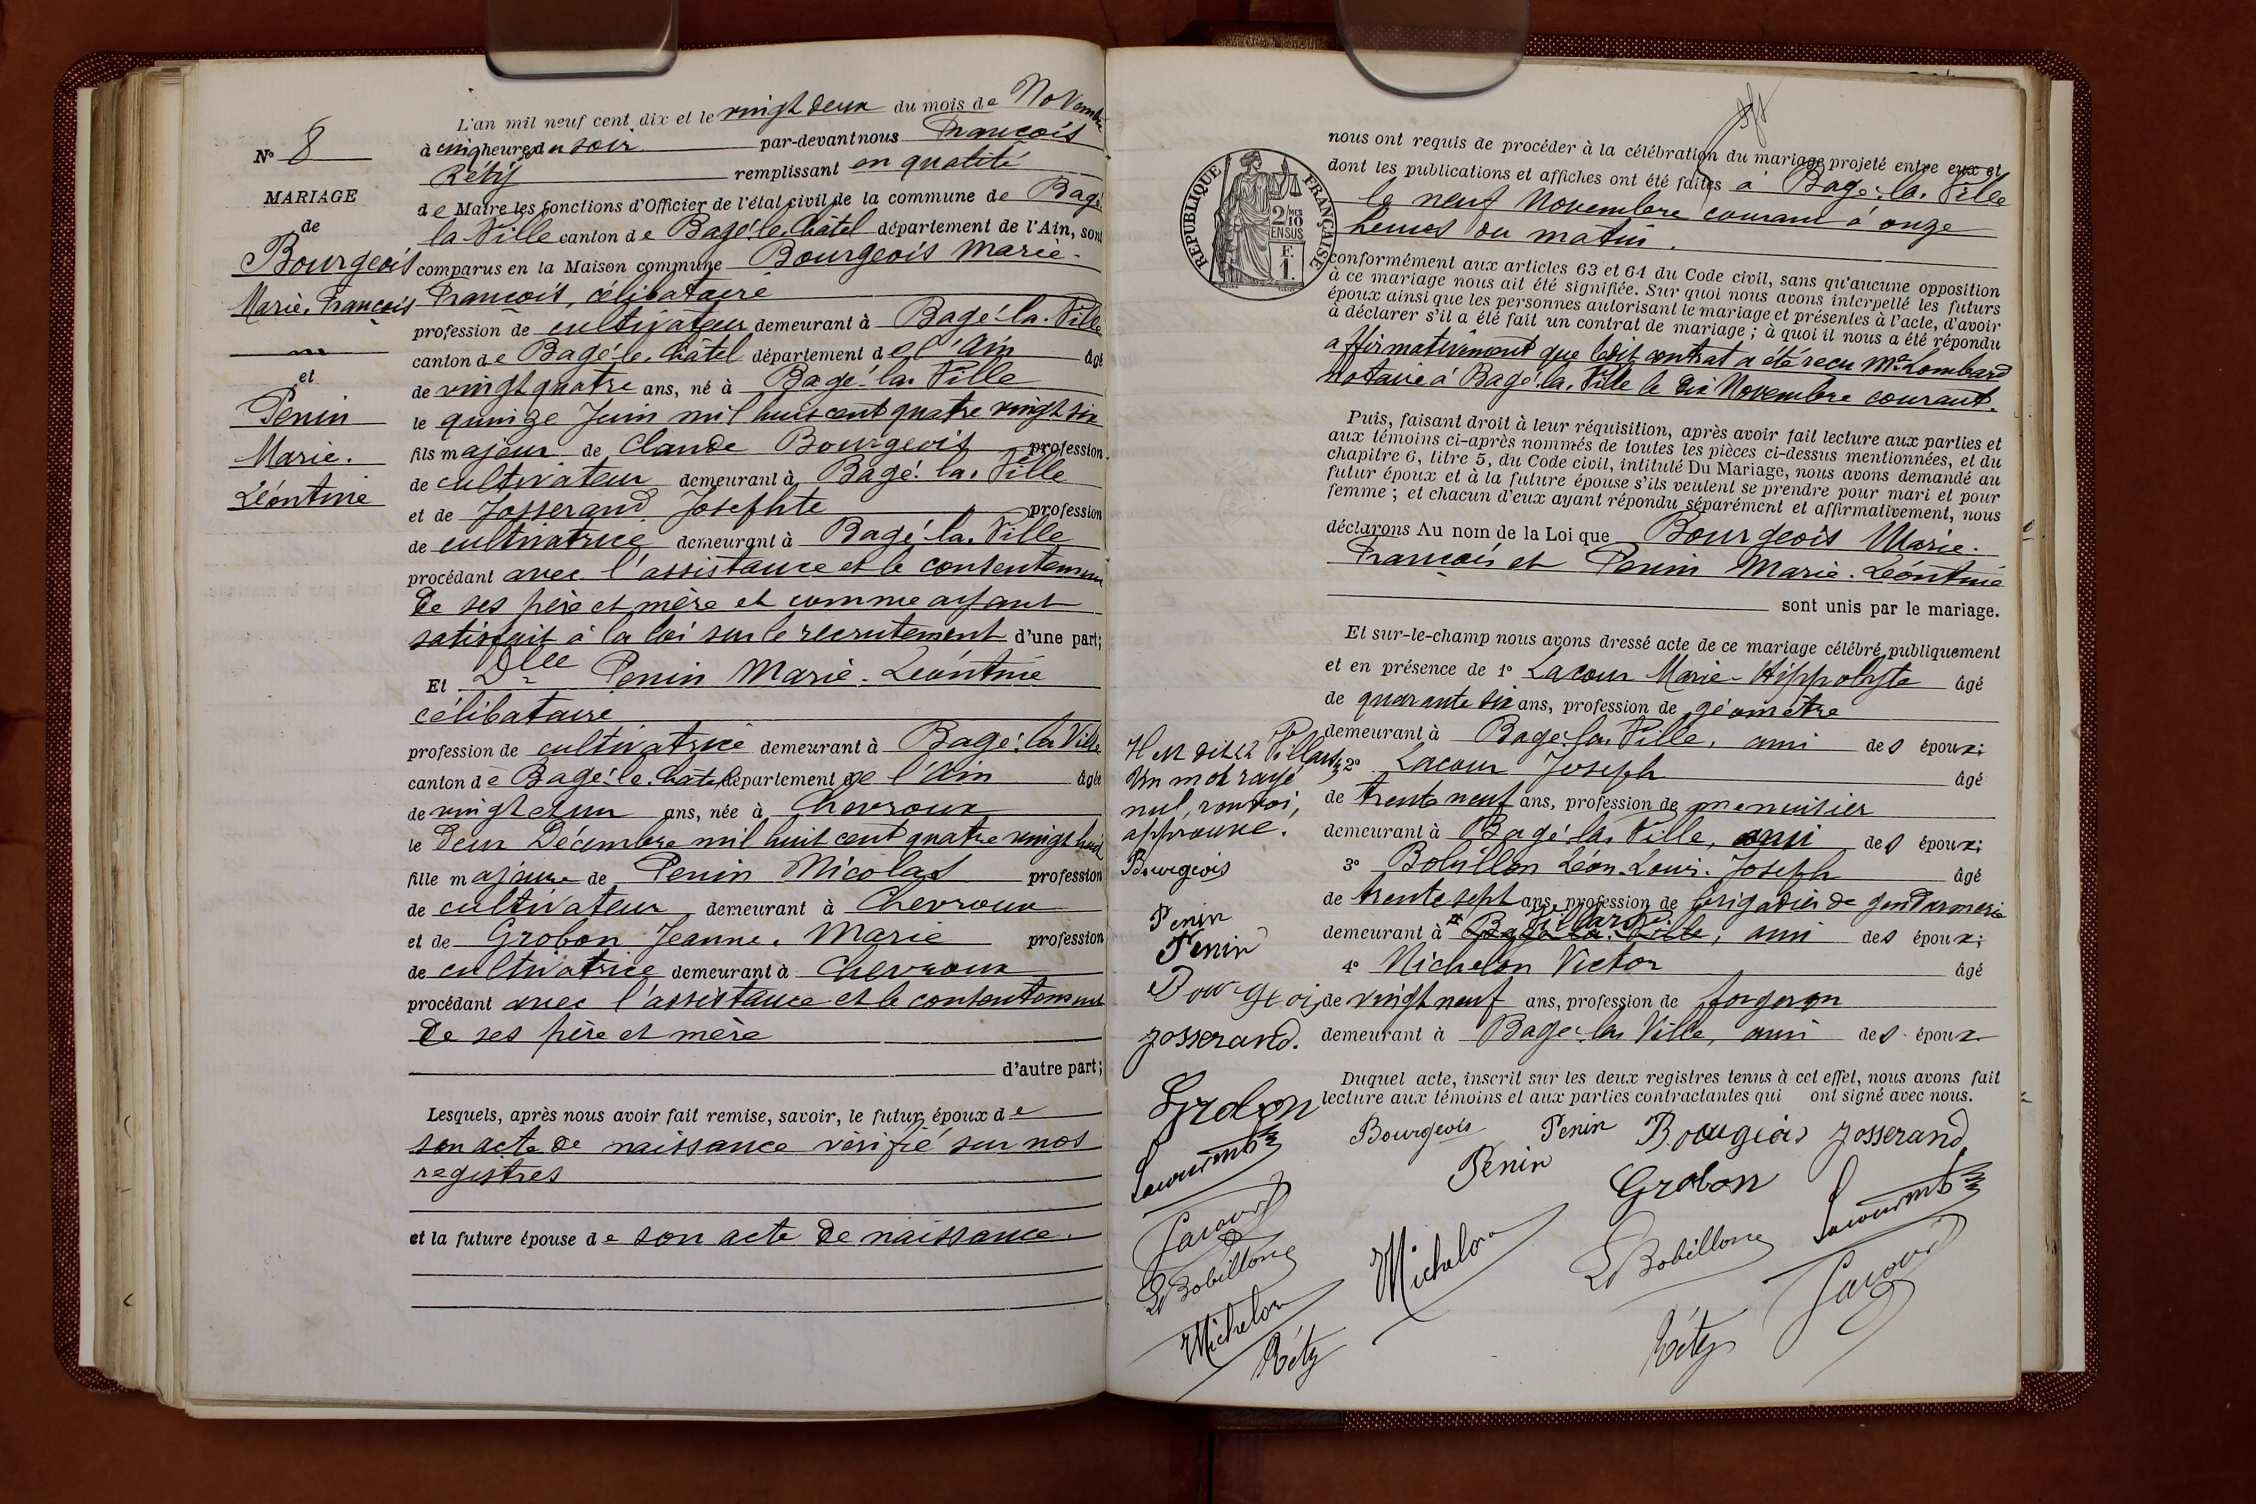 N° 8
MARIAGE
de
Bourgeois
Marie, François
et
Penin
Marie.
Léontine
L'an mil neuf cent dix et le vingt deux du mois de Novembre
à cinq heures du soir par-devant nous François
Réty remplissant en qualité
de Maire les fonctions d'Officier de l'état civil de la commune de Bagé
la Ville canton de Bagé-le-Châtel département de l'Ain, sont
comparus en la Maison commune Bourgeois Marie-
François, célibataire
profession de cultivateur demeurant à Bagé-la-Ville
canton de Bagé-le-Châtel département de l'Ain âgé
de vingt quatre ans, né à Bagé-la-Ville
le quinze Juin mil huit cent quatre vingt six
fils majeur de Claude Bourgeois profession
de cultivateur demeurant à Bagé-la-Ville
et de Josserand Josephte profession
de cultivatrice demeurant à Bagé-la-Ville
procédant avec l'assistance et le consentement
de ses père et mère et comme ayant
satisfait à la loi sur le recrutement d'une part;
Et Dlle Penin Marie-Léontine
célibataire
profession de cultivatrice demeurant à Bagé-la-Ville
canton de Bagé-le-Châtel département de l'Ain âgée
de vingt et un ans, née à Chevroux
le deux Décembre mil huit cent quatre vingt huit
fille majeure de Penin Nicolas profession
de cultivateur demeurant à Chevroux
et de Grobon Jeanne-Marie profession
de cultivatrice demeurant à Chevroux
procédant avec l'assistance et le consentement
de ses père et mère
d'autre part;
Lesquels, après nous avoir fait remise, savoir, le futur époux de
son acte de naissance vérifié sur nos
registres
et la future épouse de son acte de naissance.
RÉPUBLIQUE FRANÇAISE
2/10
EN SUS
F.
1.
nous ont requis de procéder à la célébration du mariage projeté entre eux et
dont les publications et affiches ont été faites à Bagé-la-Ville
le neuf Novembre courant à onze
heures du matin.
conformément aux articles 63 et 64 du Code civil, sans qu'aucune opposition
à ce mariage nous ait été signifiée. Sur quoi nous avons interpellé les futurs
époux ainsi que les personnes autorisant le mariage et présentes à l'acte, d'avoir
à déclarer s'il a été fait un contrat de mariage; à quoi il nous a été répondu
affirmativement que ledit contrat a été reçu Me Lombard
Notaire à Bagé-la-Ville le dix Novembre courant.
Puis, faisant droit à leur réquisition, après avoir fait lecture aux parties et
aux témoins ci-après nommés de toutes les pièces ci-dessus mentionnées, et du
chapitre 6, titre 5, du Code civil, intitulé Du Mariage, nous avons demandé au
futur époux et à la future épouse s'ils veulent se prendre pour mari et pour
femme; et chacun d'eux ayant répondu séparément et affirmativement, nous
déclarons Au nom de la Loi que Bourgeois Marie-
François et Penin Marie-Léontine
sont unis par le mariage.
Et sur-le-champ nous avons dressé acte de ce mariage célébré publiquement
et en présence de 1° Lacour Marie-Hippolyte âgé
de quarante six ans, profession de géomètre
demeurant à Bagé-la-Ville, ami des époux;
2° Lacour Joseph âgé
de trente neuf ans, profession de menuisier
demeurant à Bagé-la-Ville, ami des époux;
3° Bobillon Léon-Louis-Joseph âgé
de trente sept ans, profession de brigadier de gendarmerie
demeurant à Villars, ami des époux;
4° Michelon Victor âgé
de vingt neuf ans, profession de forgeron
demeurant à Bagé-la-Ville, ami des époux
Duquel acte, inscrit sur les deux registres tenus à cet effet, nous avons fait
lecture aux témoins et aux parties contractantes qui ont signé avec nous.
Bourgeois Penin Bourgeois Josserand
Penin Grobon
Michelon L Bobillon
Réty
Un mot rayé
nul, renvoi,
approuvé.
Bourgeois
Penin
Penin
Bourgeois
Josserand.
Grobon
Lacour
L Bobillon
Michelon
Réty